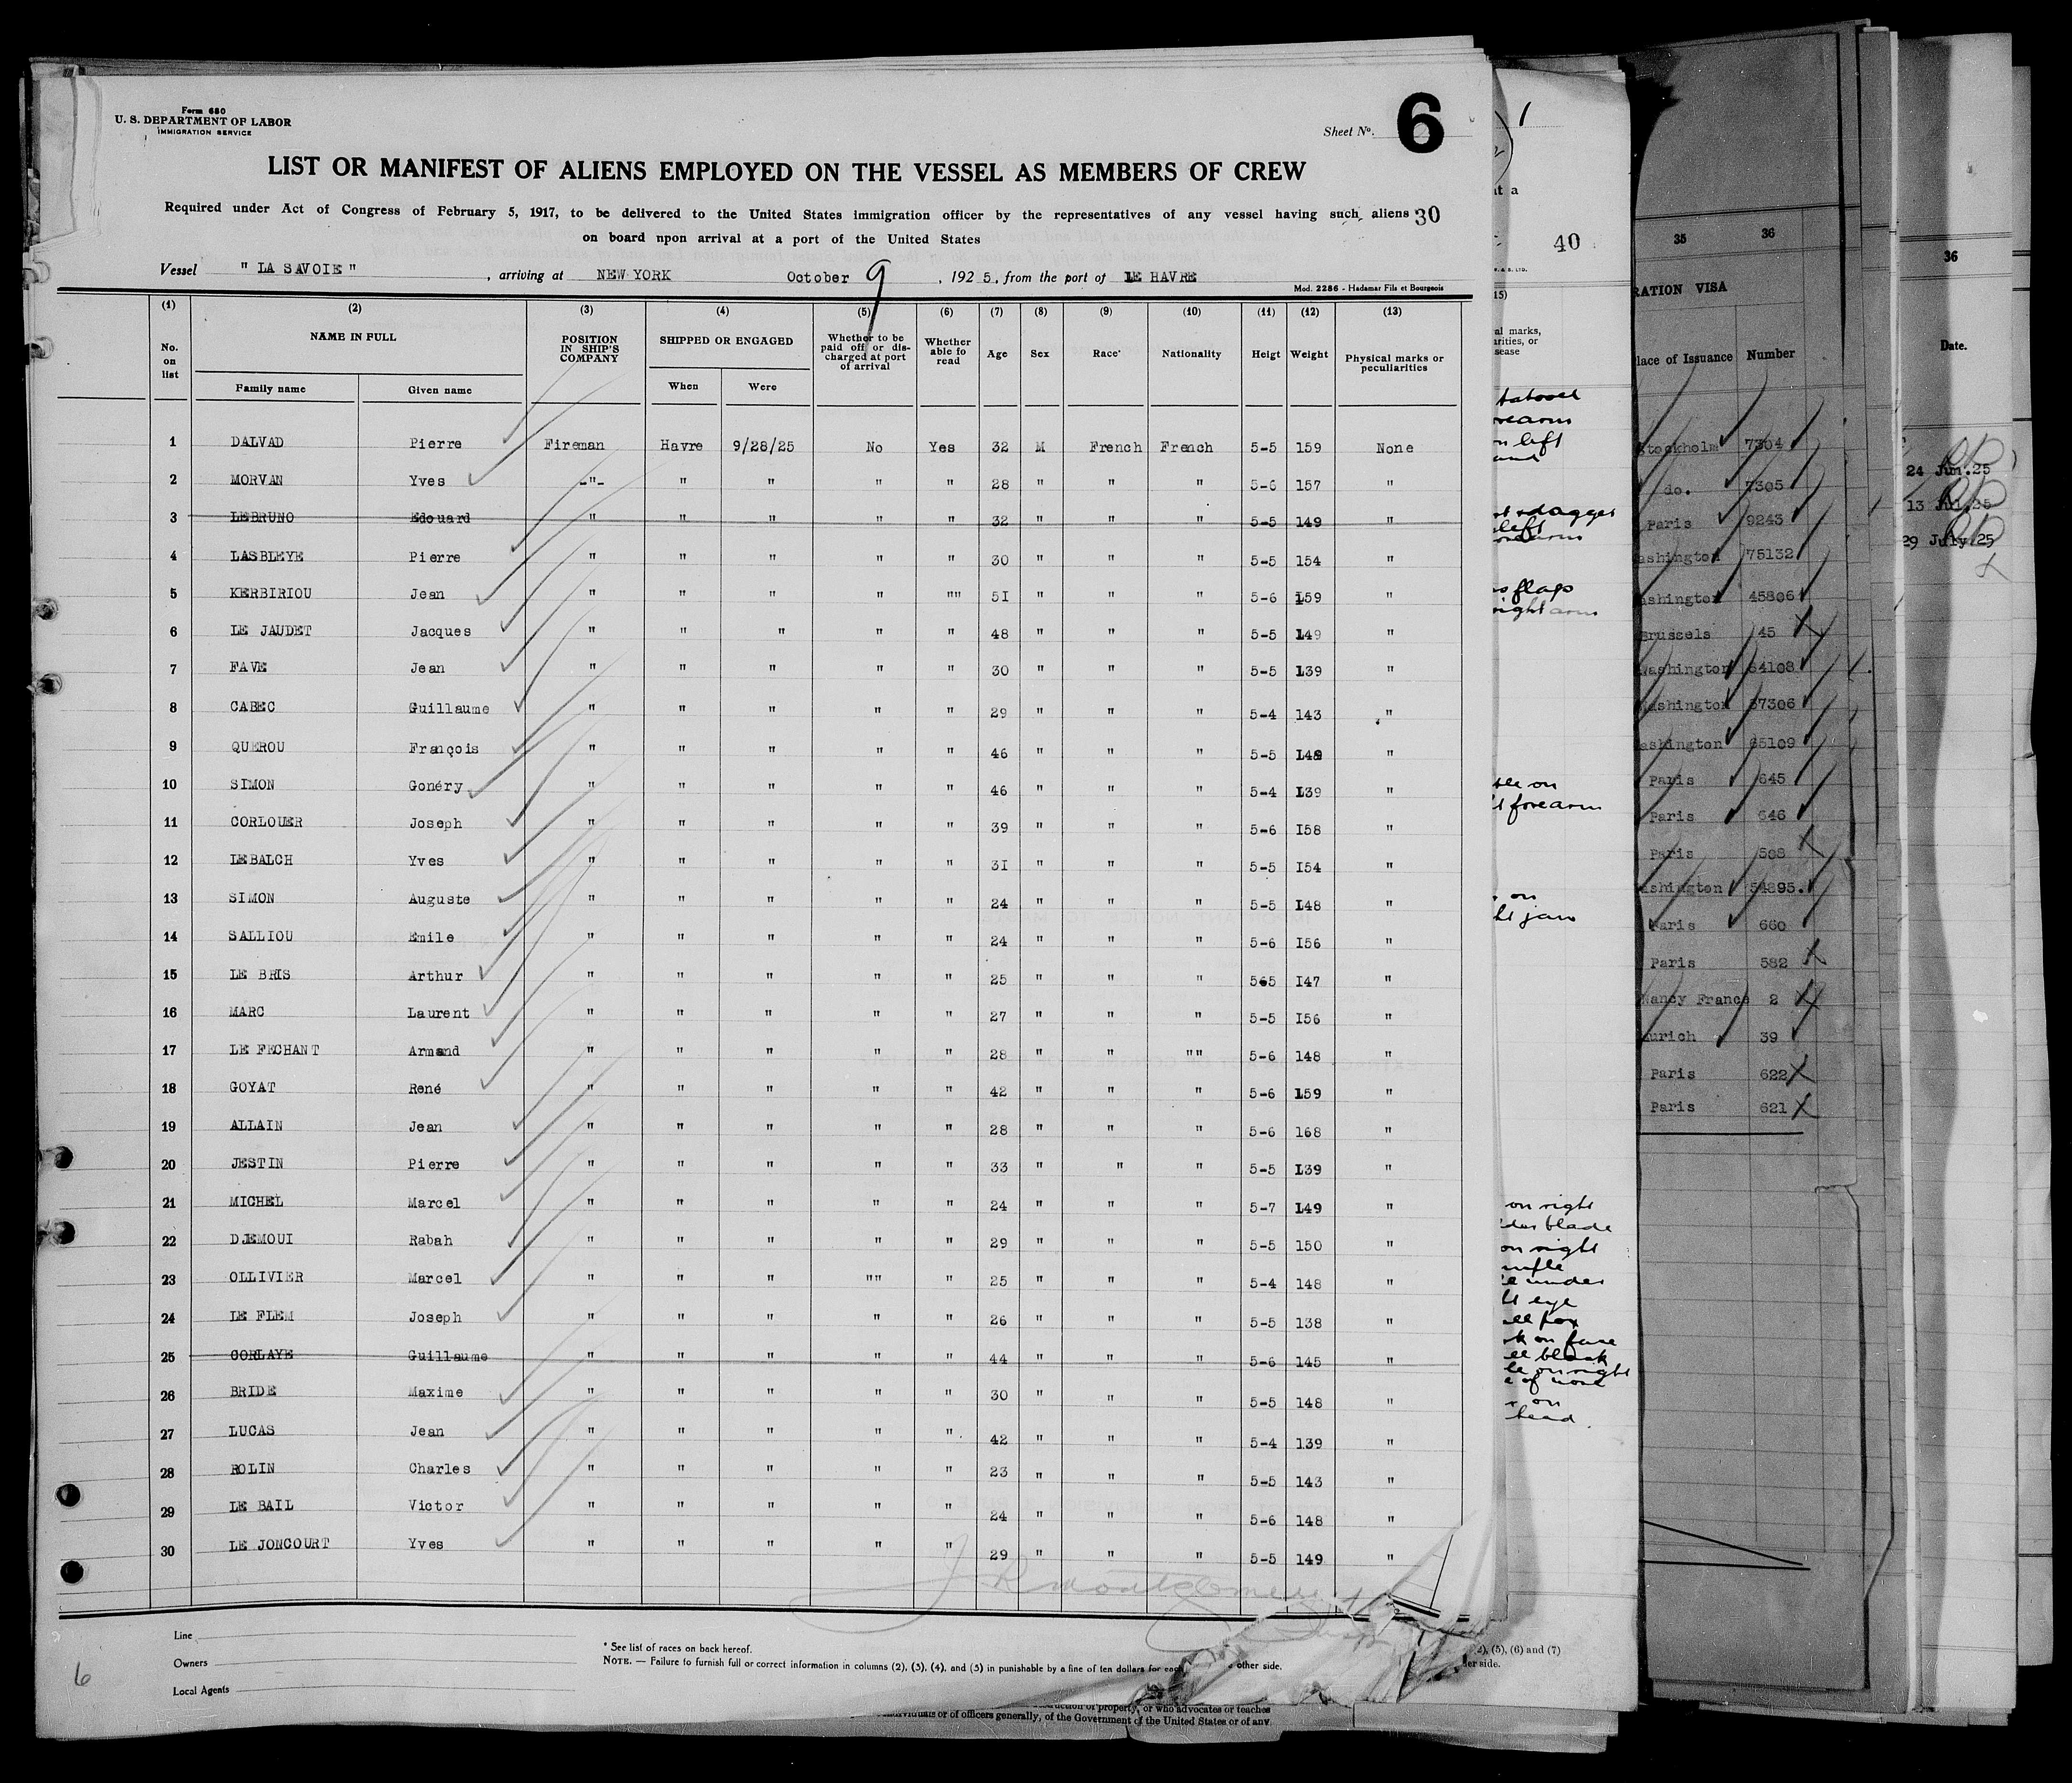 Form 680
U. S. DEPARTMENT OF LABOR
IMMIGRATION SERVICE
Sheet No. 6
LIST OR MANIFEST OF ALIENS EMPLOYED ON THE VESSEL AS MEMBERS OF CREW
Required under Act of Congress of February 5, 1917, to be delivered to the United States immigration officer by the representatives of any vessel having such aliens 30
on board npon arrival at a port of the United States
Vessel " LA SAVOIE " , arriving at NEW YORK October 9 , 192 5, from the port of LE HAVRE
Mod. 2286 - Hadamar Fils et Bourgeois
(1) (2) (3) (4) (5) (6) (7) (8) (9) (10) (11) (12) (13)
No. on list NAME IN FULL Family name Given name POSITION IN SHIP'S COMPANY SHIPPED OR ENGAGED When Were Whether to be paid off or discharged at port of arrival Whether able fo read Age Sex Race* Nationality Heigt Weight Physical marks or peculiarities
1 DALVAD Pierre Fireman Havre 9/28/25 No Yes 32 M French French 5-5 159 None
2 MORVAN Yves -"- " " " " 28 " " " 5-6 157 "
3 LEBRUNO Edouard " " " " " 32 " " " 5-5 149 "
4 LASBLEYE Pierre " " " " " 30 " " " 5-5 154 "
5 KERBIRIOU Jean " " " " "" 51 " " " 5-6 159 "
6 LE JAUDET Jacques " " " " " 48 " " " 5-5 149 "
7 FAVE Jean " " " " " 30 " " " 5-5 139 "
8 CABEC Guillaume " " " " " 29 " " " 5-4 143 "
9 QUEROU François " " " " " 46 " " " 5-5 148 "
10 SIMON Gonéry " " " " " 46 " " " 5-4 139 "
11 CORLOUER Joseph " " " " " 39 " " " 5-6 I58 "
12 LEBALCH Yves " " " " " 3I " " " 5-5 I54 "
13 SIMON Auguste " " " " " 24 " " " 5-5 148 "
14 SALLIOU Emile " " " " " 24 " " " 5-6 I56 "
15 LE BRIS Arthur " " " " " 25 " " " 565 I47 "
16 MARC Laurent " " " " " 27 " " " 5-5 I56 "
17 LE FECHANT Armand " " " " " 28 " " "" 5-6 148 "
18 GOYAT René " " " " " 42 " " " 5-6 159 "
19 ALLAIN Jean " " " " " 28 " " " 5-6 168 "
20 JESTIN Pierre " " " " " 33 " " " 5-5 139 "
21 MICHEL Marcel " " " " " 24 " " " 5-7 149 "
22 DJEMOUI Rabah " " " " " 29 " " " 5-5 150 "
23 OLLIVIER Marcel " " " "" " 25 " " " 5-4 148 "
24 LE FLEM Joseph " " " " " 26 " " " 5-5 138 "
25 CORLAYE Guillaume " " " " " 44 " " " 5-6 145 "
26 BRIDE Maxime " " " " " 30 " " " 5-5 148 "
27 LUCAS Jean " " " " " 42 " " " 5-4 139 "
28 ROLIN Charles " " " " " 23 " " " 5-5 143 "
29 LE BAIL Victor " " " " " 24 " " " 5-6 148 "
30 LE JONCOURT Yves " " " " " 29 " " " 5-5 149 "
Line
Owners
Local Agents
* See list of races on back hereof.
NOTE. — Failure to furnish full or correct information in columns (2), (3), (4), and (5) in punishable by a fine of ten dollars for each
other side.
6
, (5), (6) and (7)
er side.
of property, or who advocates or teaches
or of officers generally, of the Government of the United States or of any
1
40
on left
flags
right arm
forearm
on
jaw
on right
blade
on right
under
eye
on face
on right
on
head.
35 36
VISA
lace of Issuance Number
Stockholm 7304
do. 7305
Paris 9243
ashington 75132
ashington 45806
Brussels 45
Washington 64108
Washington 37306
ashington 65109
Paris 645
Paris 646
Paris 508
ashington 54895.
Paris 660
Paris 582
Nancy France 2
urich 39
Paris 622
Paris 621
36
Date.
24 Jun.25
13 Jul.25
29 July.25